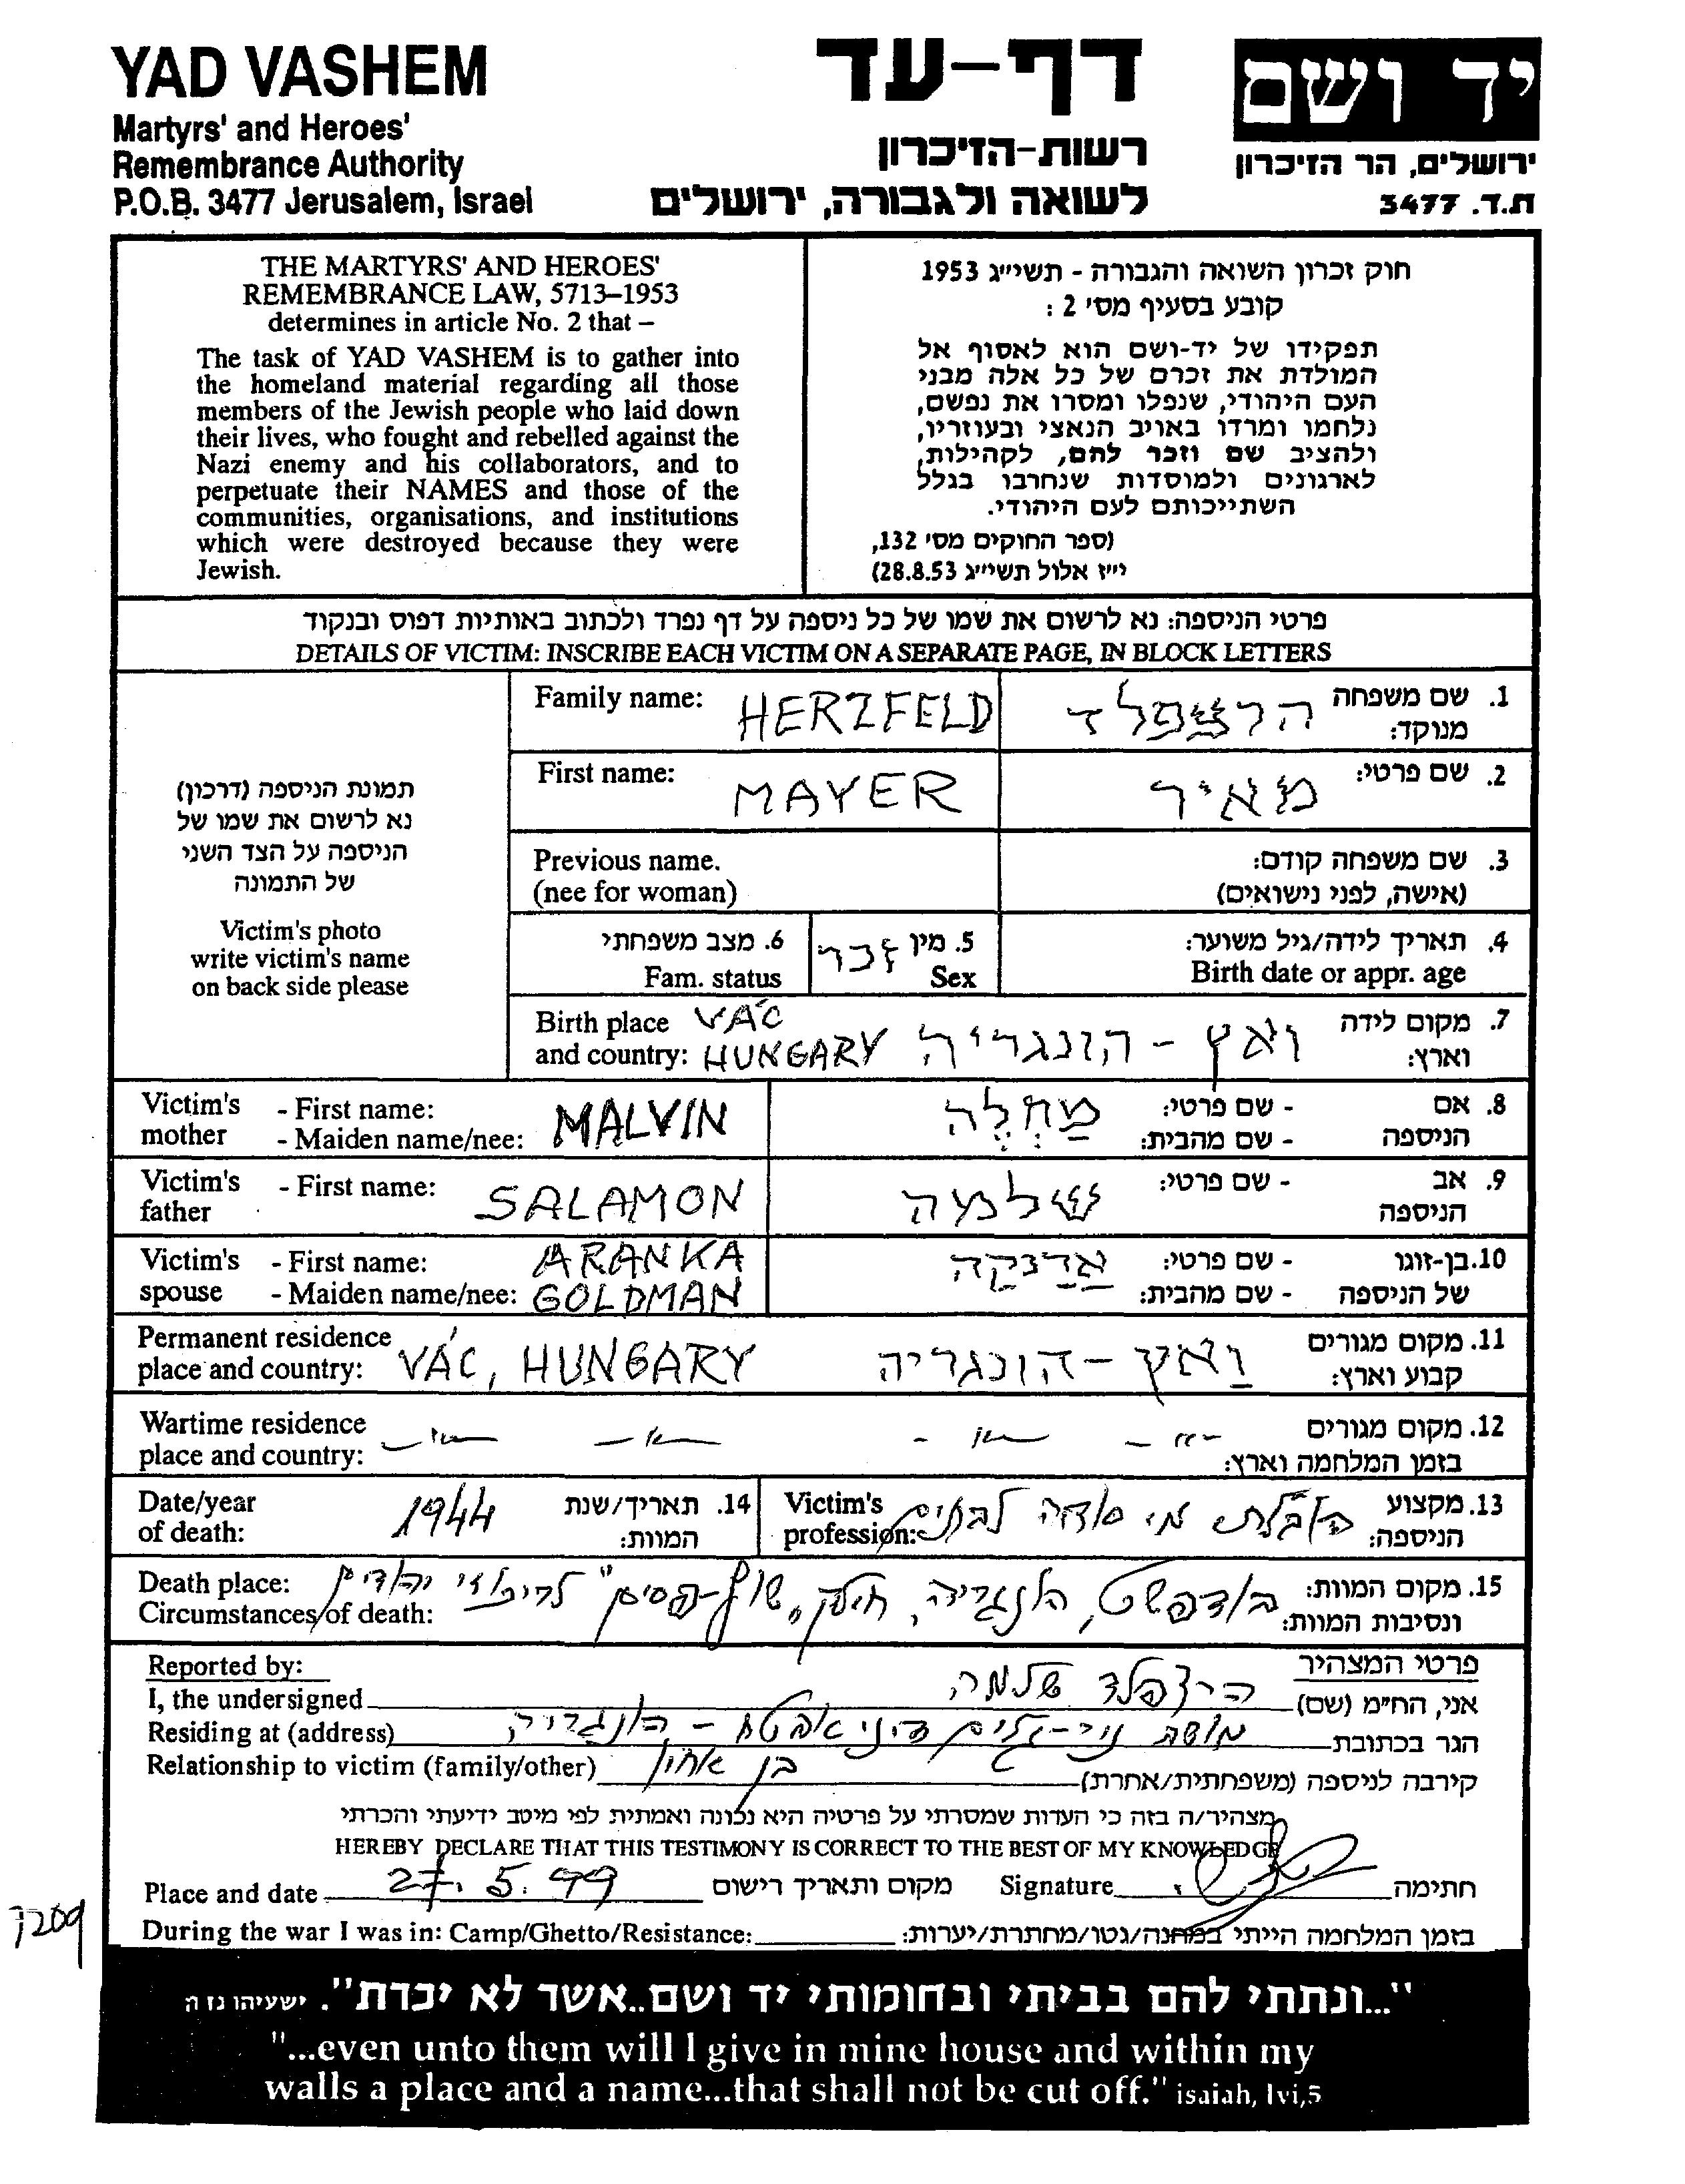 YAD VASHEM
Martyrs' and Heroes'
Remembrance Authority
P.O.B. 3477 Jerusalem, Israel
דף-עד
רשות-הזיכרון
לשואה ולגבורה, ירושלים
יד ושם
ירושלים, הר הזיכרון
ת.ד. 3477
THE MARTYRS' AND HEROES'
REMEMBRANCE LAW, 5713–1953
determines in article No. 2 that –
The task of YAD VASHEM is to gather into
the homeland material regarding all those
members of the Jewish people who laid down
their lives, who fought and rebelled against the
Nazi enemy and his collaborators, and to
perpetuate their NAMES and those of the
communities, organisations, and institutions
which were destroyed because they were
Jewish.
חוק זכרון השואה והגבורה - תשי״ג 1953
קובע בסעיף מס׳ 2 :
תפקידו של יד-ושם הוא לאסוף אל
המולדת את זכרם של כל אלה מבני
העם היהודי, שנפלו ומסרו את נפשם,
נלחמו ומרדו באויב הנאצי ובעוזריו,
ולהציב שם וזכר להם, לקהילות,
לארגונים ולמוסדות שנחרבו בגלל
השתייכותם לעם היהודי.
(ספר החוקים מס׳ 132,
י״ז אלול תשי״ג 28.8.53)
פרטי הניספה: נא לרשום את שמו של כל ניספה על דף נפרד ולכתוב באותיות דפוס ובנקוד
DETAILS OF VICTIM: INSCRIBE EACH VICTIM ON A SEPARATE PAGE, IN BLOCK LETTERS
תמונת הניספה (דרכון)
נא לרשום את שמו של
הניספה על הצד השני
של התמונה
Victim's photo
write victim's name
on back side please
Family name: HERZFELD הרצפלד 1. שם משפחה
מנוקד:
First name: MAYER מאיר 2. שם פרטי:
Previous name. 3. שם משפחה קודם:
(nee for woman) (אישה, לפני נישואים)
6. מצב משפחתי 5. מין זכר 4. תאריך לידה/גיל משוער:
Fam. status Sex Birth date or appr. age
Birth place VÁC 7. מקום לידה
and country: HUNGARY ואץ - הונגריה וארץ:
Victim's - First name: MALVIN מַחְלֶה - שם פרטי: 8. אם
mother - Maiden name/nee: - שם מהבית: הניספה
Victim's - First name: SALAMON שלמה - שם פרטי: 9. אב
father הניספה
Victim's - First name: ARANKA אַרַנקָה - שם פרטי: 10. בן-זוגו
spouse - Maiden name/nee: GOLDMAN - שם מהבית: של הניספה
Permanent residence 11. מקום מגורים
place and country: VÁC, HUNGARY וַאץ - הונגריה קבוע וארץ:
Wartime residence 12. מקום מגורים
place and country: — " — — " — - " - - " - בזמן המלחמה וארץ:
Date/year 1944 14. תאריך/שנת Victim's הובלת מי סודה לבתים 13. מקצוע
of death: המוות: profession: הניספה:
Death place: בודפשט, הונגריה, חילק "שוץ-פסים" לריכוזי יהודים 15. מקום המוות:
Circumstances/of death: ונסיבות המוות:
Reported by: פרטי המצהיר
I, the undersigned הרצפלד שלמה אני, החי״מ (שם)
Residing at (address) הגר בכתובת
Relationship to victim (family/other) בן אחיו קירבה לניספה (משפחתית/אחרת)
מצהיר/ה בזה כי העדות שמסרתי על פרטיה היא נכונה ואמתית לפי מיטב ידיעתי והכרתי
HEREBY DECLARE THAT THIS TESTIMONY IS CORRECT TO THE BEST OF MY KNOWLEDGE
Place and date 27.5.99 מקום ותאריך רישום Signature חתימה
7209
During the war I was in: Camp/Ghetto/Resistance: בזמן המלחמה הייתי במחנה/גטו/מחתרת/יערות:
"...ונתתי להם בביתי ובחומותי יד ושם..אשר לא יכרת". ישעיהו נז ה
"...even unto them will I give in mine house and within my
walls a place and a name...that shall not be cut off." isaiah, lvi,5